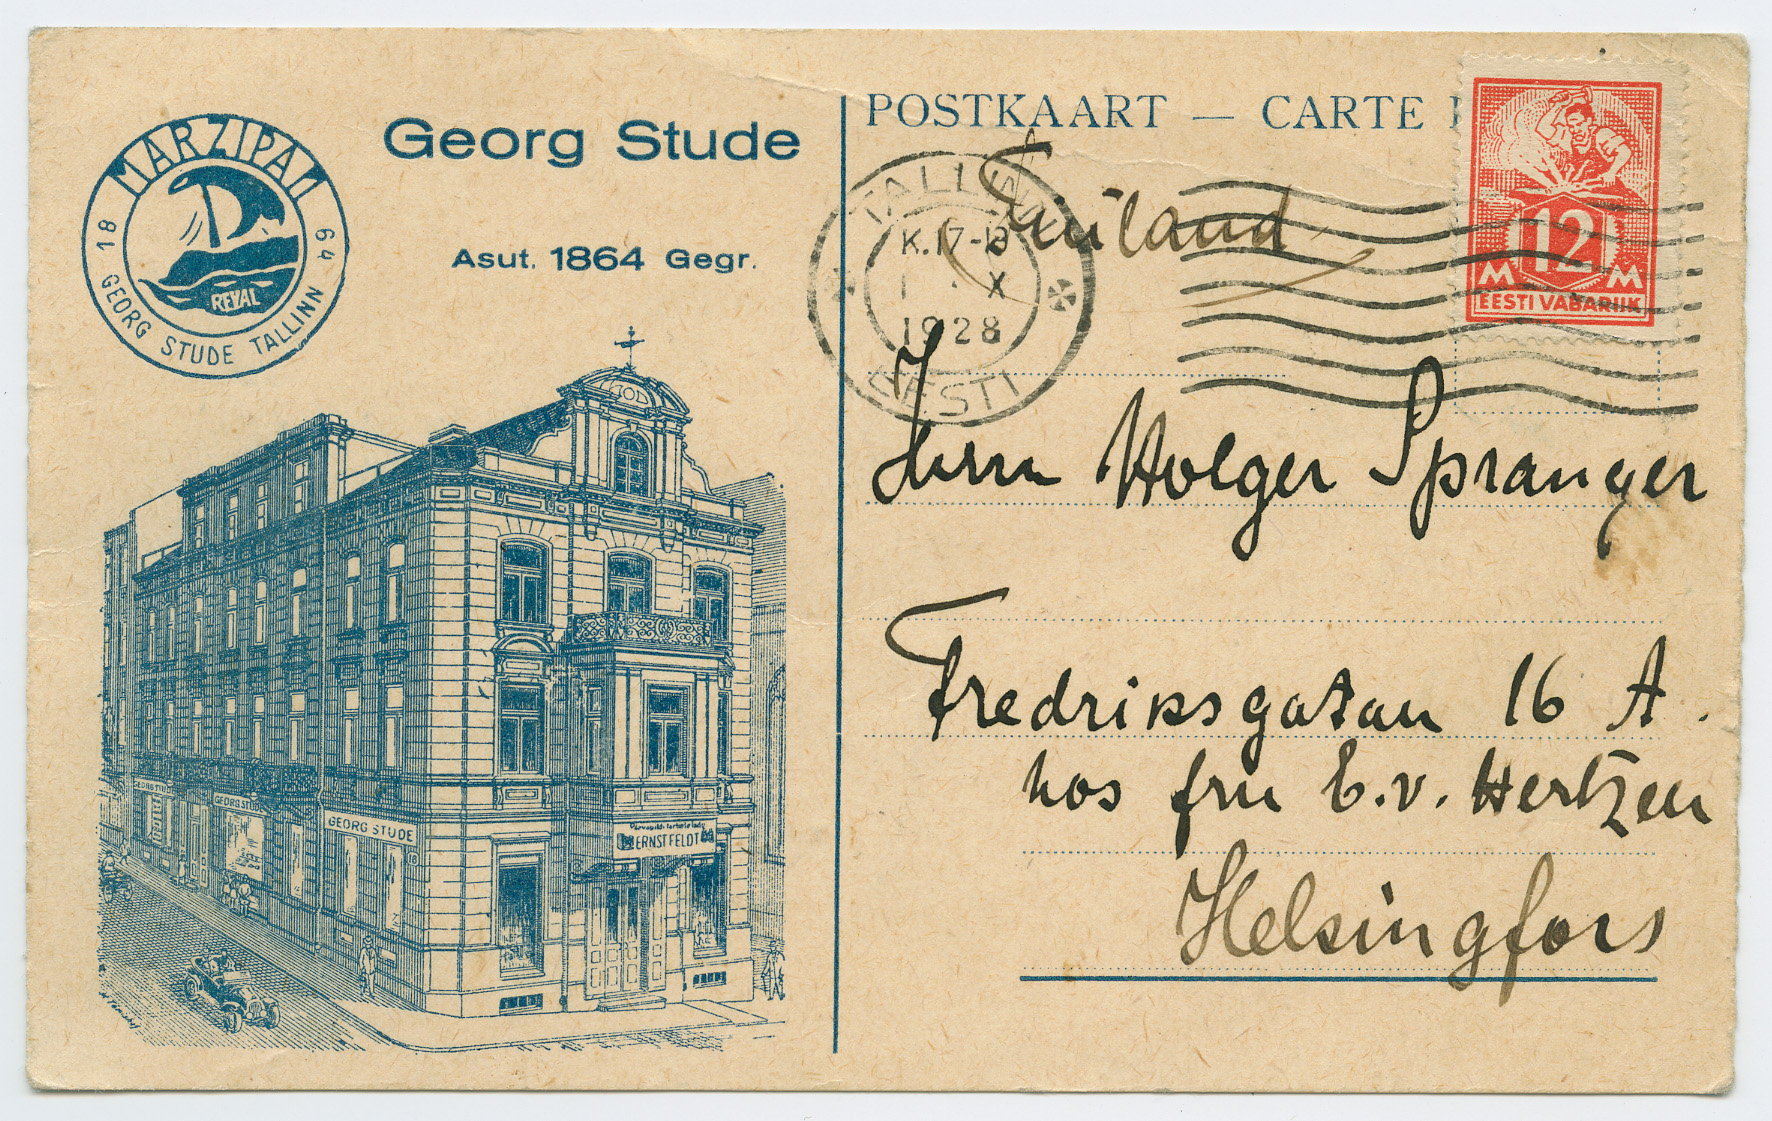 MARZIPAN
18 64
REVAL
GEORG STUDE TALLINN
Georg Stude
Asut. 1864 Gegr.
GEORG STUDE
GEORG STUDE
18
ERNST FELDT
POSTKAART — CARTE
TALLINN
K.17-18
X
1928
EESTI
12
M M
EESTI VABARIIK
Finland
Herrn Holger Spranger
Fredriksgatan 16 A.
hos fru E. v. Hertzen
Helsingfors